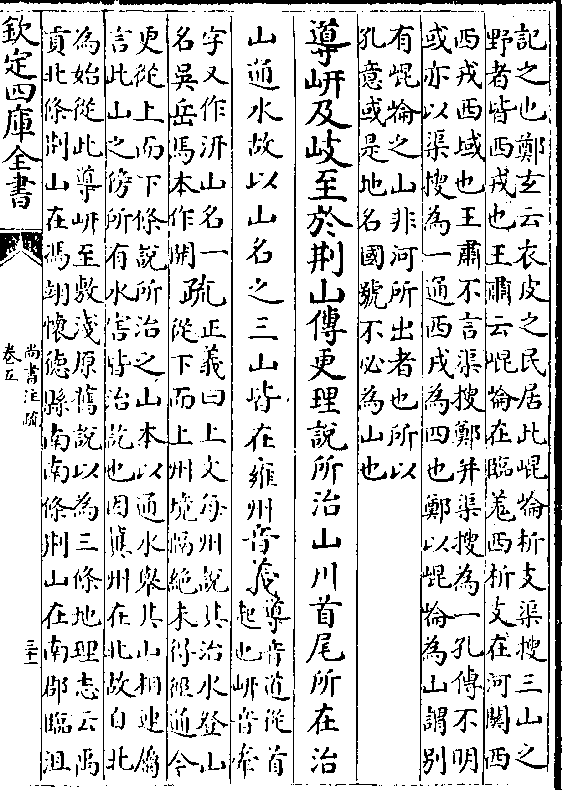 記之也鄭𤣥云衣皮之民居此崐崘析支渠搜三山之
野者皆西戎也王肅云崐崘在臨羌西析支在河闗西
西戎西域也王肅不言渠搜鄭并渠搜為一孔傳不明
或亦以渠搜為一通西戎為四也鄭以崐崘為山謂别
有崐崘之山非河所出者也所以
孔意或是地名國號不必為山也
導岍及岐至於荆山傳更理說所治山川首尾所在治
山通水故以山名之三山皆在雍州音義
導音道從首
起也岍音牽
字又作汧山名一
名吳岳馬本作開
疏
正義曰上文每州說其治水登山
從下而上州境隔絶未得徑通今
更從上而下條說所治之山本以通水舉其山相連屬
言此山之傍所有水害皆治訖也因冀州在北故自北
為始從此導岍至敷淺原舊說以為三條地理志云禹
貢北條荆山在馮翊懷德縣南南條荆山在南郡臨沮
欽定四庫全書
尚書注疏
卷五
三十一